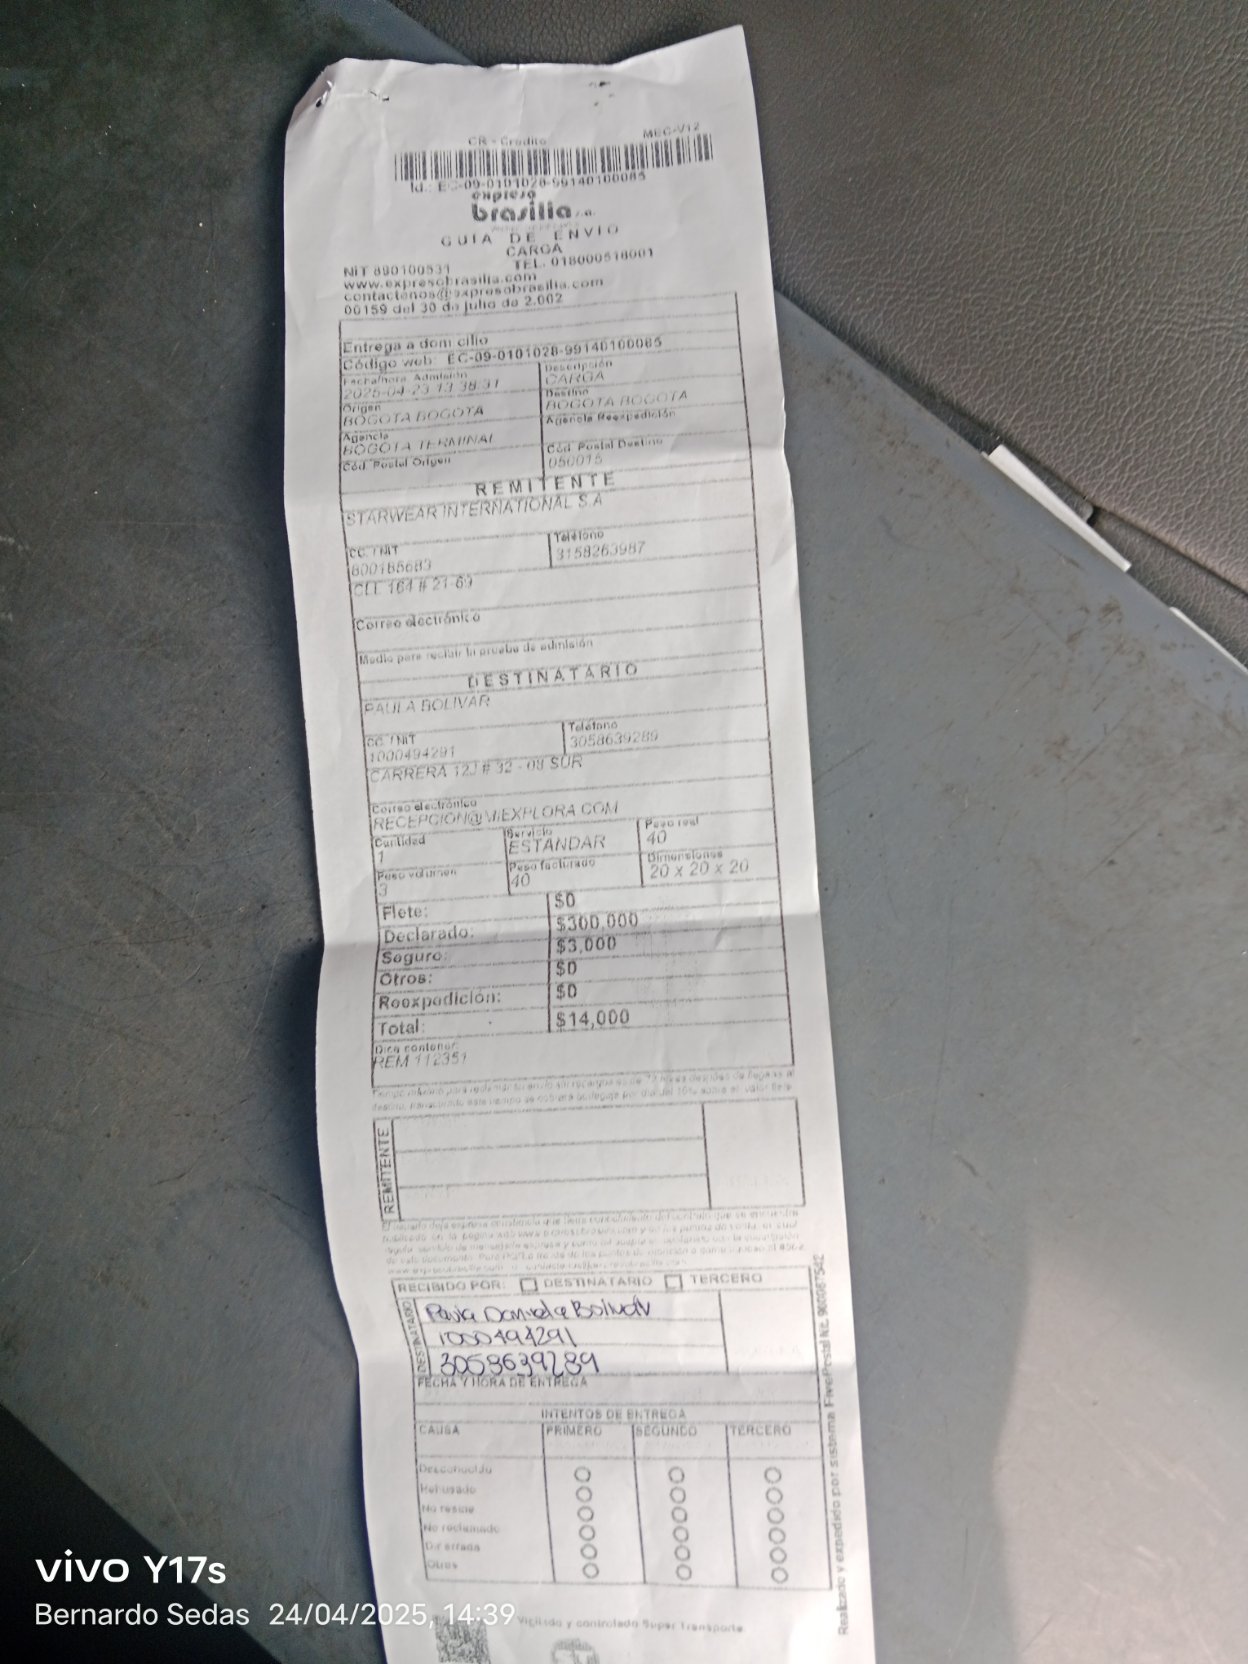 CR - Credito MEC-V12
Id.: EC-09-0101028-99140100085
expreso
brasilia s.a.
GUIA DE ENVIO
CARGA
NIT 890100531 TEL. 018000518001
www.expresobrasilia.com
contactenos@expresobrasilia.com
00159 del 30 de julio de 2.002
Entrega a dom cilio
Código web: EC-09-0101028-99140100085
Fecha/hora Admisión Descripción
2025-04-23 13:38:31 CARGA
Origen Destino
BOGOTA BOGOTA BOGOTA BOGOTA
Agencia Agencia Reexpedición
BOGOTA TERMINAL
Cód. Postal Origen Cód. Postal Destino
050015
REMITENTE
STARWEAR INTERNATIONAL S.A
CC. / NIT Teléfono
800185683 3158263987
CLL 164 # 21-69
Correo electrónico
Medio para recibir la prueba de admisión
DESTINATARIO
PAULA BOLIVAR
CC. / NIT Teléfono
1000494291 3058639289
CARRERA 12J # 32 - 08 SUR
Correo electrónico
RECEPCION@MIEXPLORA.COM
Cantidad Servicio Peso real
1 ESTANDAR 40
Peso volumen Peso facturado Dimensiones
3 40 20 x 20 x 20
Flete: $0
Declarado: $300,000
Seguro: $3,000
Otros: $0
Reexpedición: $0
Total: $14,000
Dice contener:
REM 112351
REMITENTE
RECIBIDO POR: DESTINATARIO TERCERO
DESTINATARIO
Paula Daniela Bolivar
1000494291
3058639289
FECHA Y HORA DE ENTREGA
INTENTOS DE ENTREGA
CAUSA PRIMERO SEGUNDO TERCERO
Desconocido
Rehusado
No reside
No reclamado
Dir errada
Otros
Vigilado y controlado Super Transporte
Realizado y expedido por sistema FivePostal Nit. 900087542
vivo Y17s
Bernardo Sedas 24/04/2025, 14:39